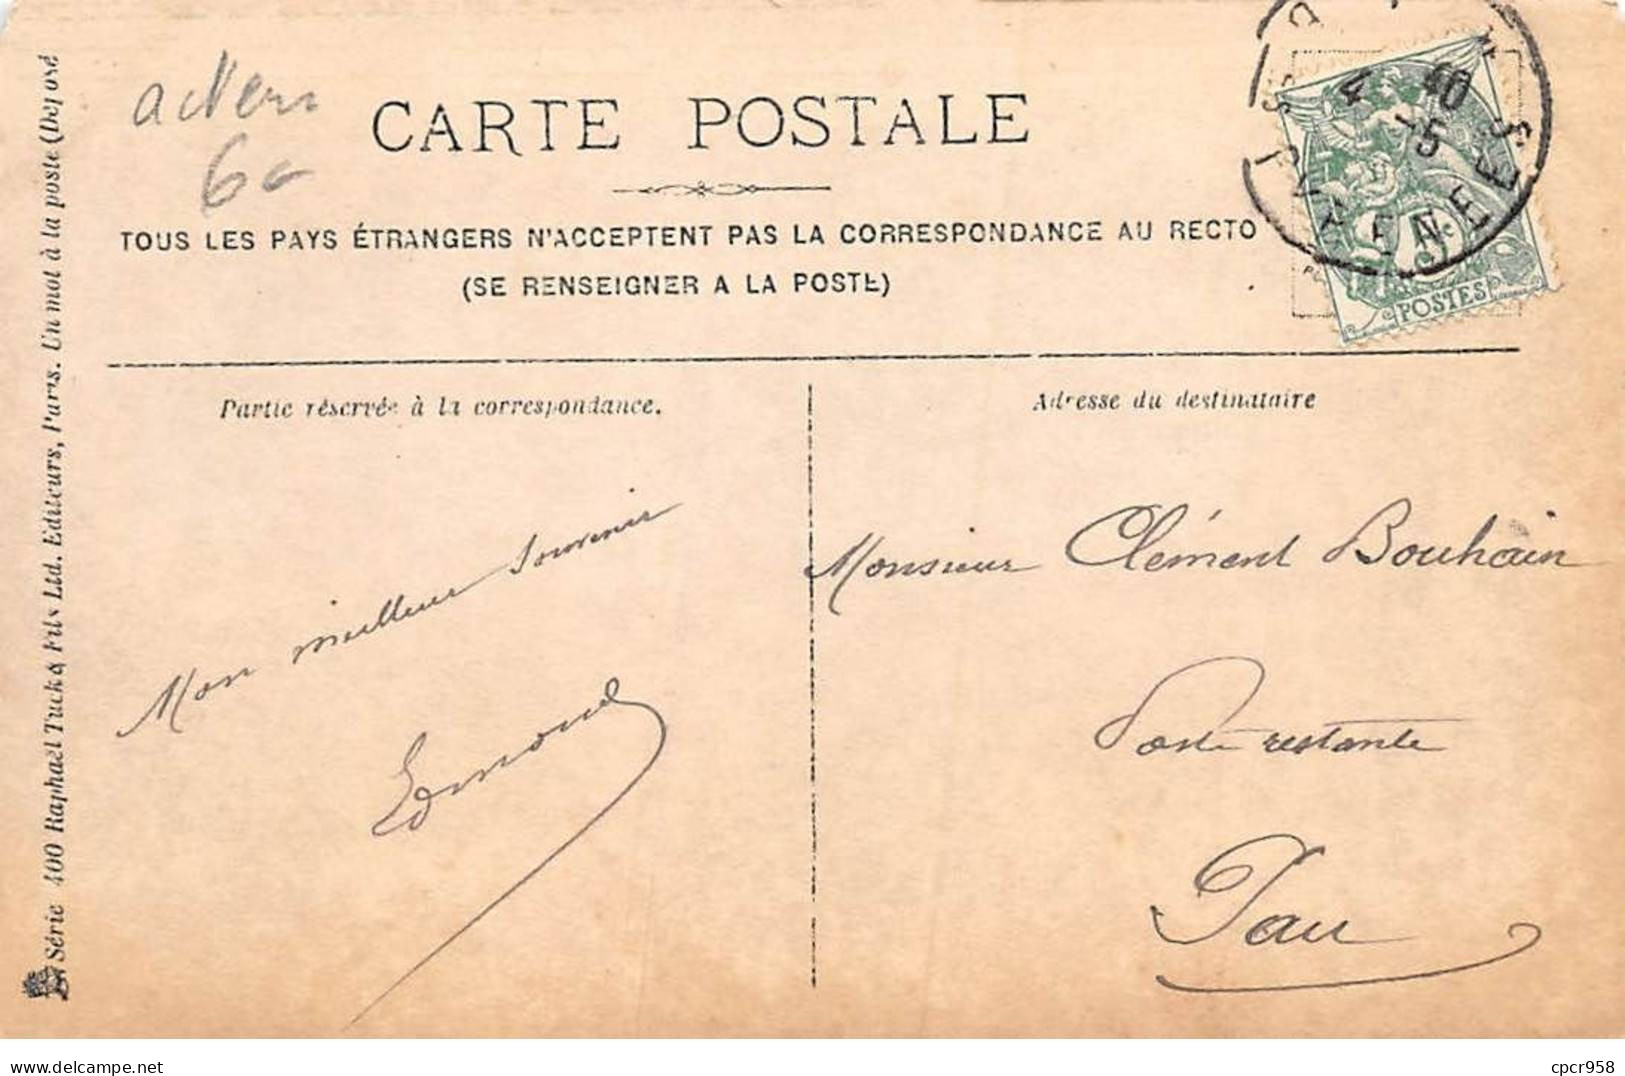 CARTE POSTALE
TOUS LES PAYS ÉTRANGERS N'ACCEPTENT PAS LA CORRESPONDANCE AU RECTO
(SE RENSEIGNER A LA POSTE)
Partie réservée à la correspondance.
Adresse du destinataire
Mon meilleur Souvenir
Edmond
Monsieur Clément Bouhain
Poste restante
Pau
Série 400 Raphaël Tuck & Fils Ltd. Editeurs, Paris. Un mot à la poste (Déposé
5c
POSTES
PYRENEES
6c
Delcampe.net
cpcr958